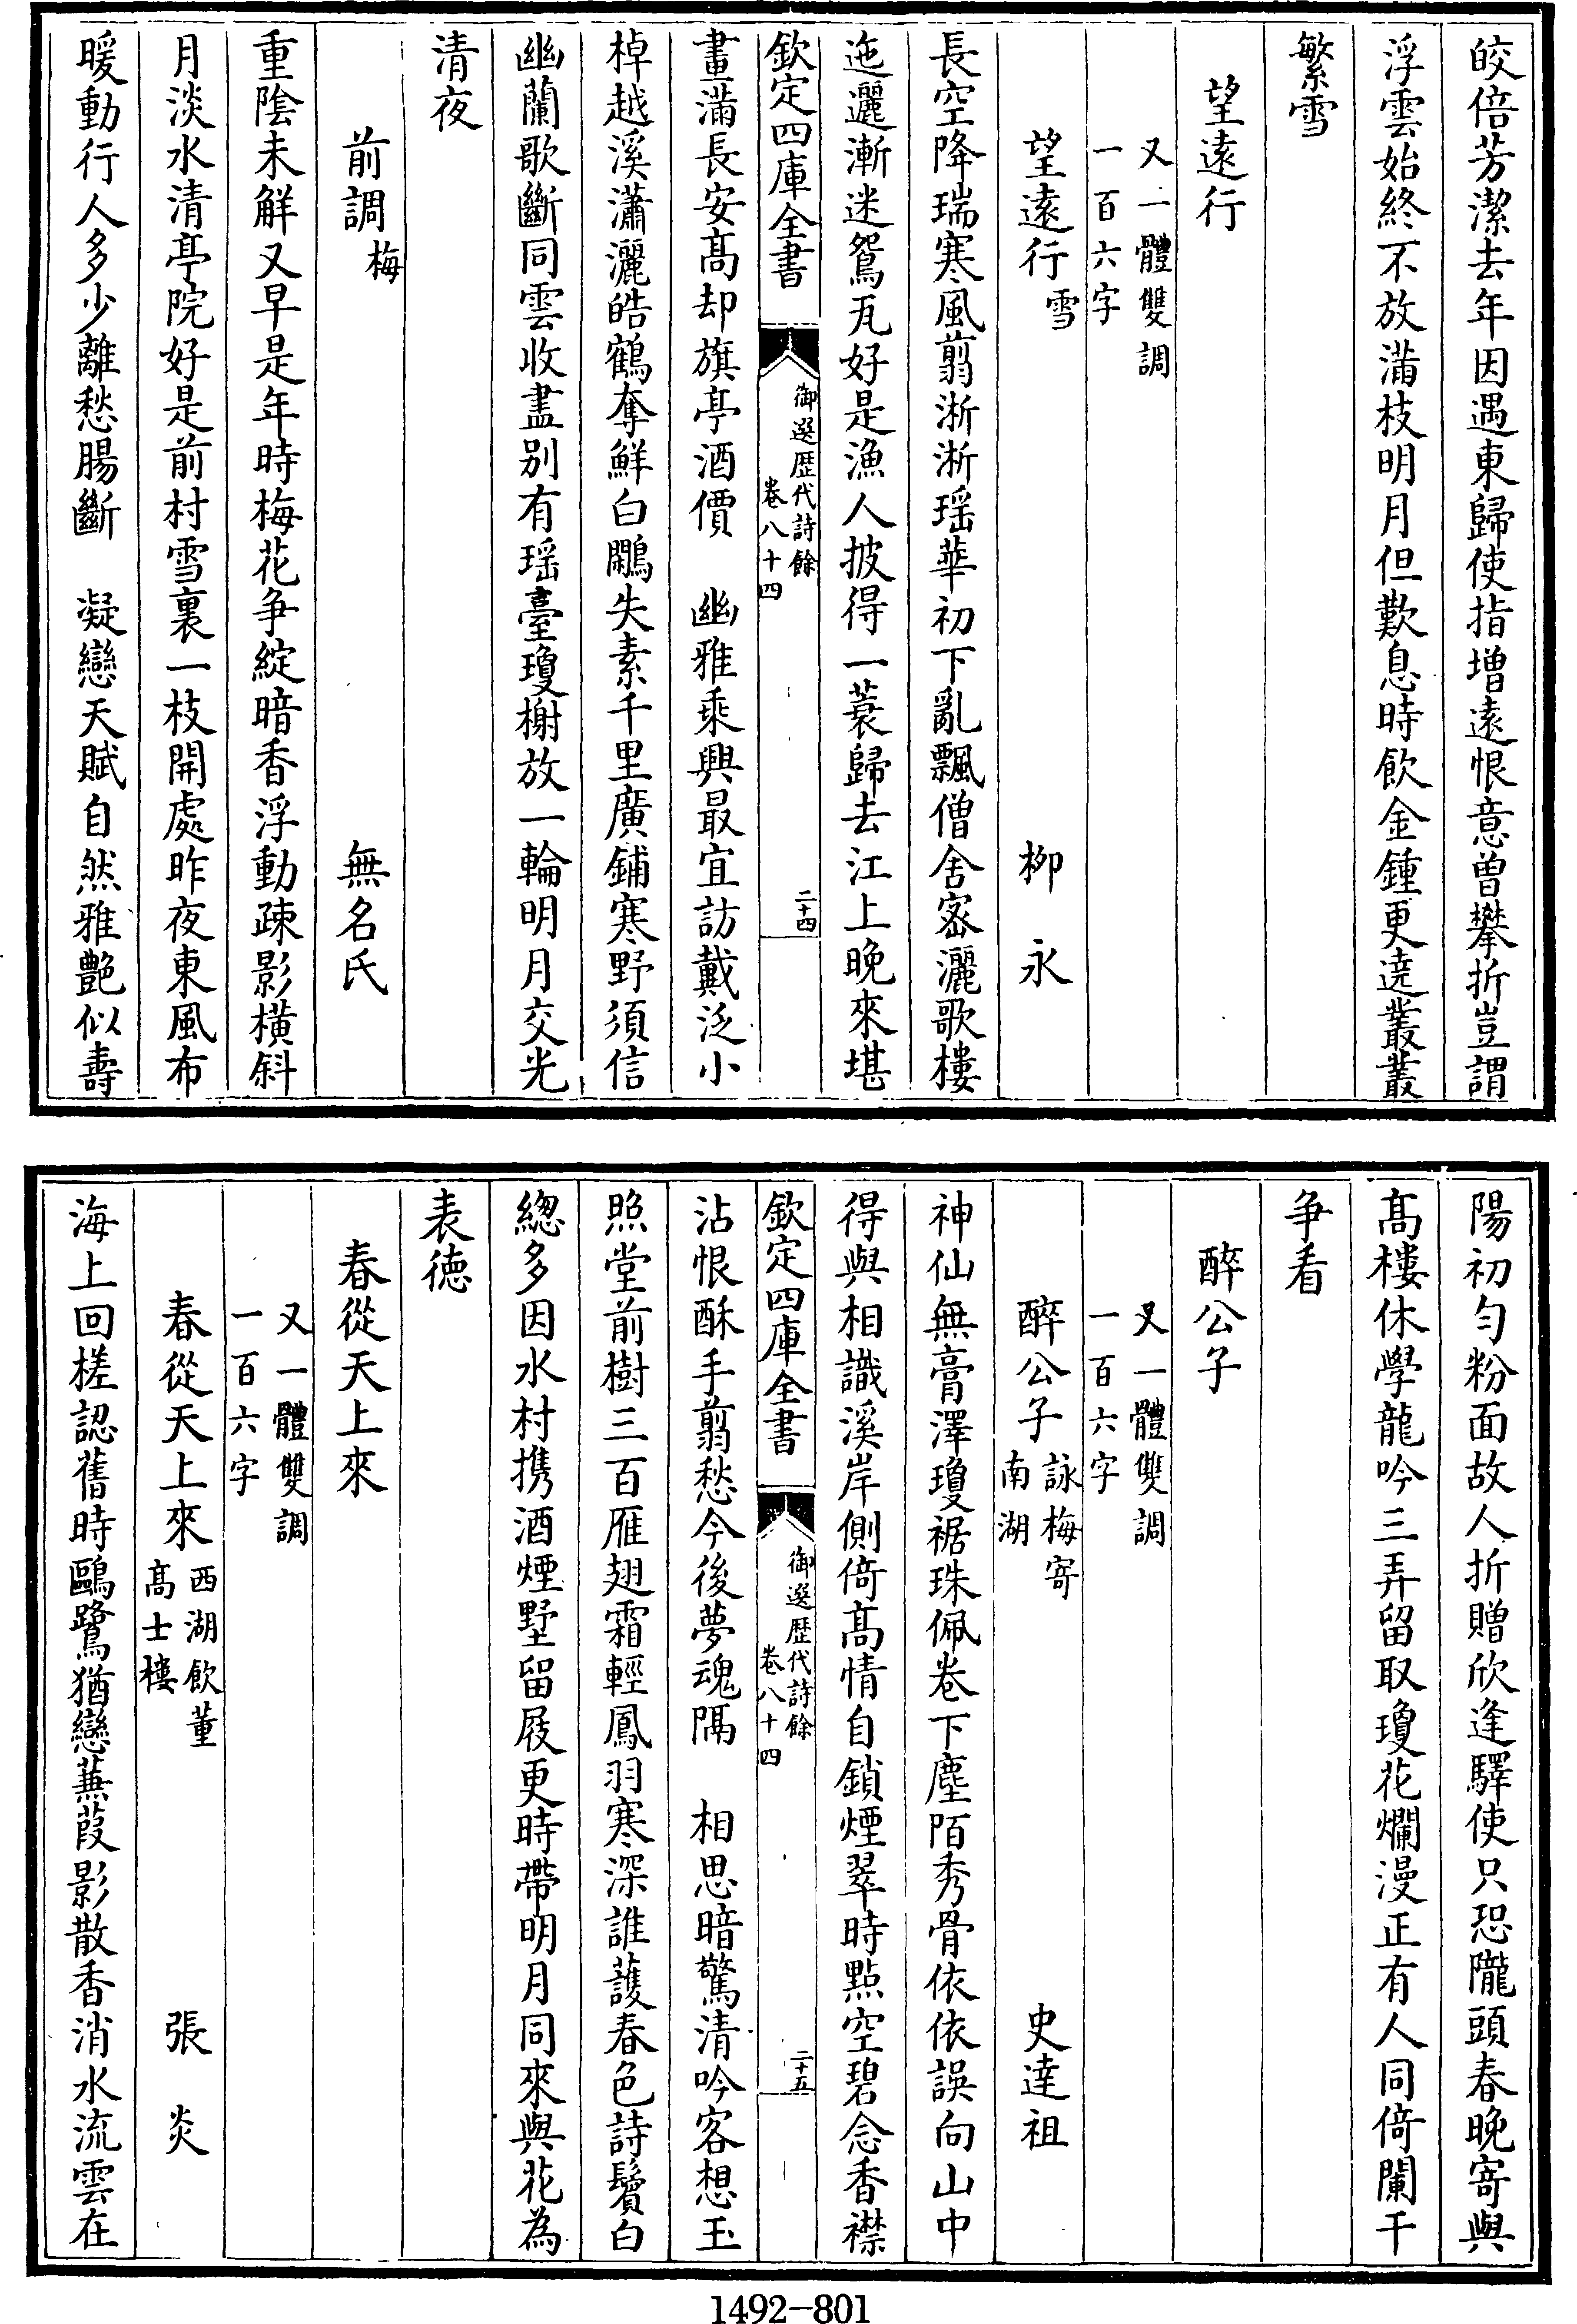 皎倍芳潔去年因遇東歸使指増遠恨意曽攀折豈謂
浮雲始終不放滿枝明月但歎息時飲金鍾更遶叢叢
繁雪
望遠行
又一體雙調
一百六字
望遠行雪 柳永
長空降瑞寒風翦淅淅瑶華初下亂飄僧舍宻灑歌樓
迤邐漸迷鴛瓦好是漁人披得一蓑歸去江上晩來堪
欽定四庫全書 御選歴代詩餘 卷八十四 二十四
畫滿長安髙却旗亭酒價 幽雅乘興最宜訪戴泛小
棹越溪瀟灑皓鶴奪鮮白鷴失素千里廣鋪寒野須信
幽蘭歌斷同雲收盡别有瑶臺瓊榭放一輪明月交光
清夜
前調梅 無名氏
重陰未解又早是年時梅花争綻暗香浮動疎影橫斜
月淡水清亭院好是前村雪裏一枝開處昨夜東風布
暖動行人多少離愁腸斷 凝戀天賦自然雅艶似壽
陽初勻粉面故人折贈欣逢驛使只恐隴頭春晩寄與
髙樓休學龍吟三弄留取瓊花爛漫正有人同倚闌干
争看
醉公子
又一體雙調
一百六字
醉公子詠梅寄南湖 史達祖
神仙無膏澤瓊裾珠佩卷下塵陌秀骨依依誤向山中
得與相識溪岸側倚髙情自鎖煙翠時點空碧念香襟
欽定四庫全書 御選歴代詩餘 卷八十四 二十五
沾恨酥手翦愁今後夢魂隔 相思暗驚清吟客想玉
照堂前樹三百雁翅霜輕鳳羽寒深誰護春色詩鬢白
總多因水村携酒煙墅留屐更時帶明月同來與花為
表德
春從天上來
又一體雙調
一百六字
春從天上來西湖飲董髙士樓 張炎
海上回槎認舊時鷗鷺猶戀蒹葭影散香消水流雲在
1492-801